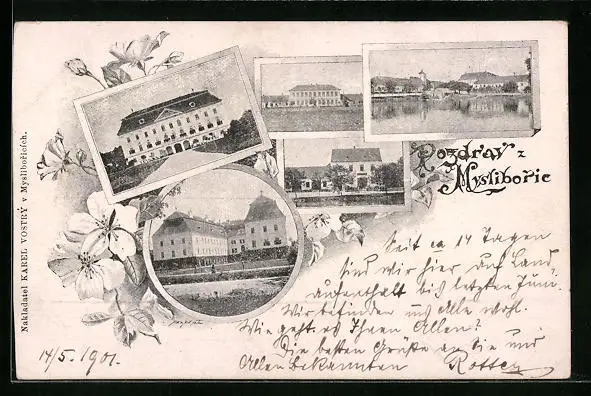 Nakladatel KAREL VOSTRÝ v Myslibořicích.
Pozdrav z
Myslibořic
Seit ca 14 Tagen
sind wir hier auf Land
aufenthalt bis letzten Juni.
Wir befinden uns Alle wohl.
Wie geht es Ihnen Allen?
Die besten Grüße an Sie und
Allen Bekannten
14/5. 1901.